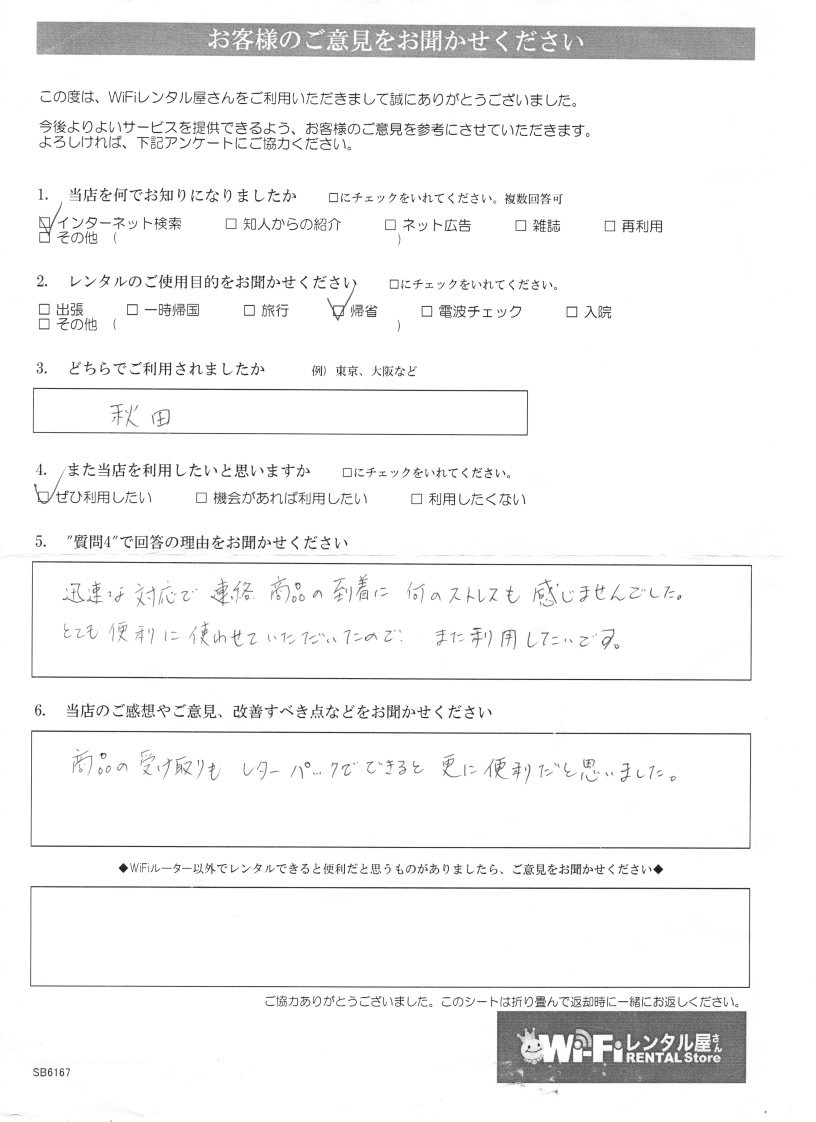 お客様のご意見をお聞かせください
この度は、WiFiレンタル屋さんをご利用いただきまして誠にありがとうございました。
今後よりよいサービスを提供できるよう、お客様のご意見を参考にさせていただきます。
よろしければ、下記アンケートにご協力ください。
1. 当店を何でお知りになりましたか □にチェックをいれてください。複数回答可
☑ インターネット検索 □ 知人からの紹介 □ ネット広告 □ 雑誌 □ 再利用
□ その他 ( )
2. レンタルのご使用目的をお聞かせください □にチェックをいれてください。
□ 出張 □ 一時帰国 □ 旅行 ☑ 帰省 □ 電波チェック □ 入院
□ その他 ( )
3. どちらでご利用されましたか 例）東京、大阪など
秋田
4. また当店を利用したいと思いますか □にチェックをいれてください。
☑ ぜひ利用したい □ 機会があれば利用したい □ 利用したくない
5. "質問4"で回答の理由をお聞かせください
迅速な対応で 連絡 商品の到着に 何のストレスも 感じませんでした。
とても便利に使わせていただいたので また利用したいです。
6. 当店のご感想やご意見、改善すべき点などをお聞かせください
商品の受け取りも レターパックでできると 更に便利だと思いました。
◆WiFiルーター以外でレンタルできると便利だと思うものがありましたら、ご意見をお聞かせください◆
ご協力ありがとうございました。このシートは折り畳んで返却時に一緒にお返しください。
Wi-Fiレンタル屋さん
RENTAL Store
SB6167